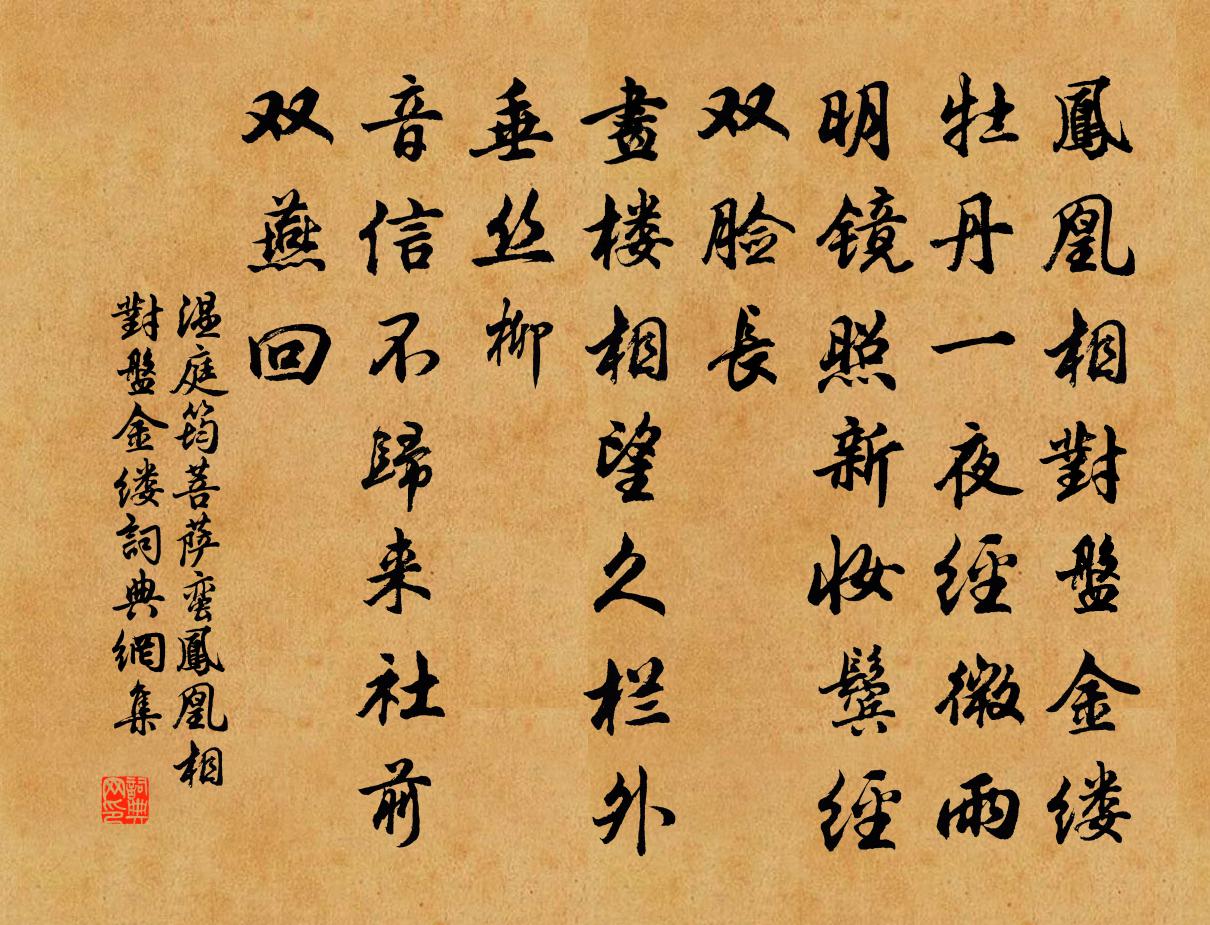 鳳凰相對盤金缕
牡丹一夜經微雨
明镜照新妆鬓經
双脸長
畫楼相望久栏外
垂丝柳
音信不歸来社前
双燕回
温庭筠菩萨蛮鳳凰相
對盤金缕詞典網集
詞典网印